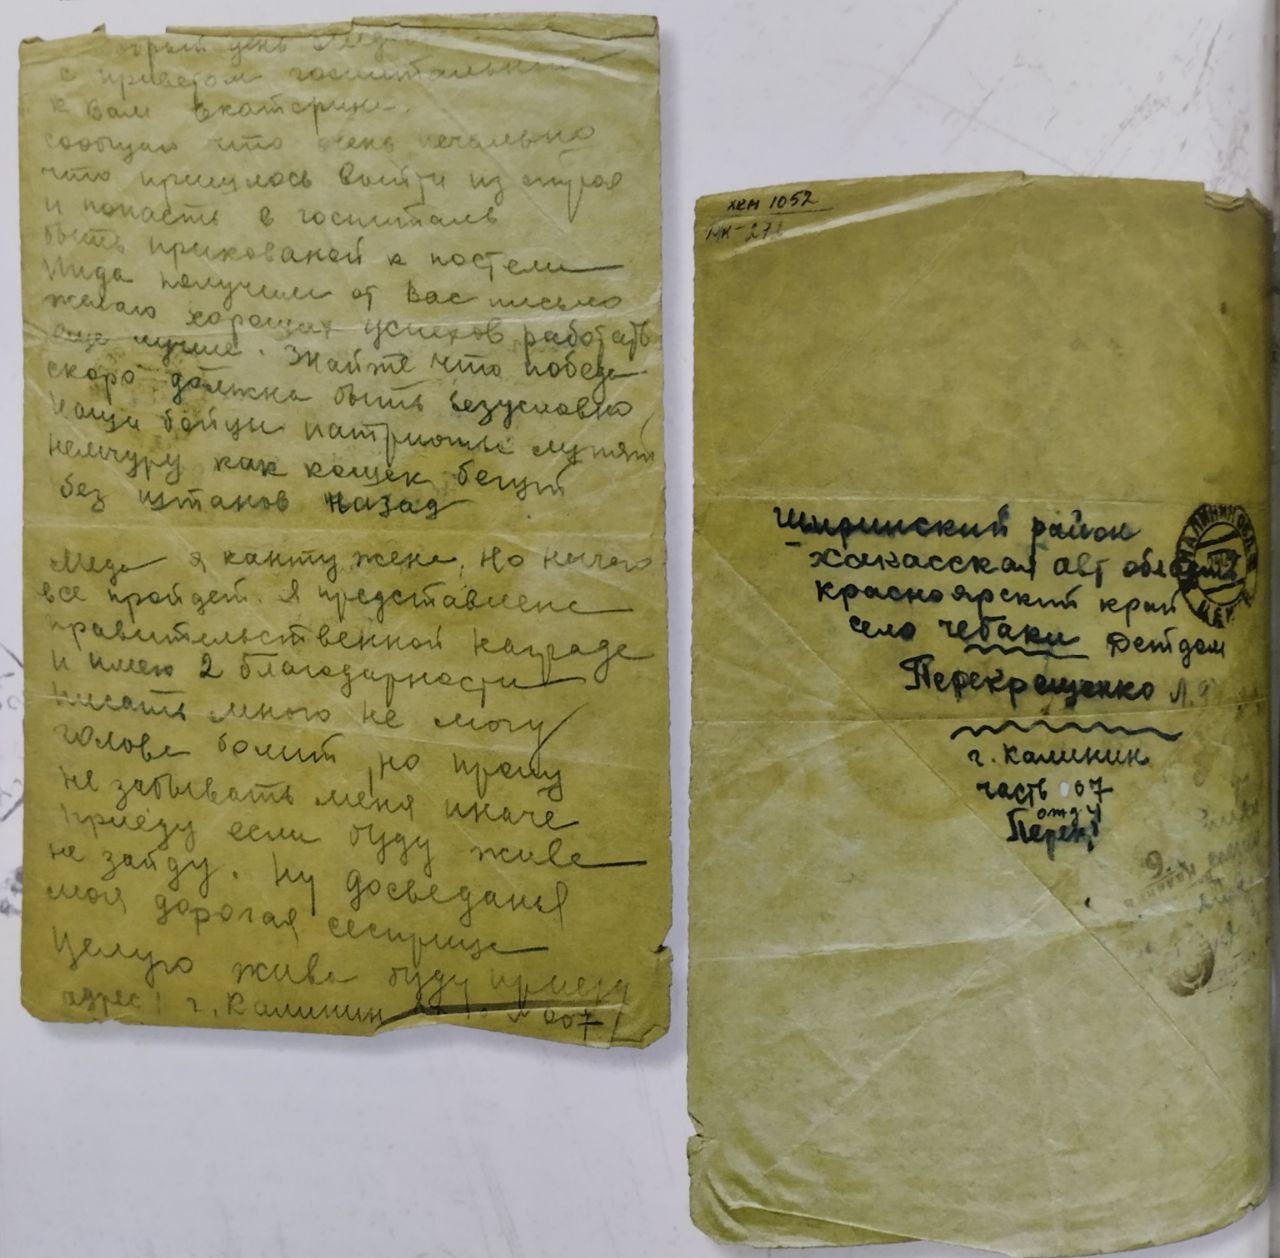 добрый день Лида
с приветом госпитальным
к Вам Екатерина.
сообщаю что очень печально
что пришлось выйти из строя
и попасть в госпиталь
быть прикованой к постели
Лида получили от Вас письмо
желаю хороших успехов работать
еще лучше. Знайте что победа
скоро должна быть безусловно,
наши бойцы патриоты лупят
немчуру как кошек бегут
без штанов назад
Лида я контужена, но ничего
все пройдет. Я представлена
правительственной награде
и имею 2 благодарности
писать много не могу
голова болит, но прошу
не забывать меня иначе
приеду если буду жива
не зайду. Ну досведанья
моя дорогая сестрица
Целую жива буду приеду
адрес! г. Калинин 007
хкм 1052
МК-27
Ширинский район
Хакасская авт область
Красноярский край
село Чебаки Детдом
Перекрещенко Л.
г. Калинин
часть 007
Перек
КАЛИНИН
9.